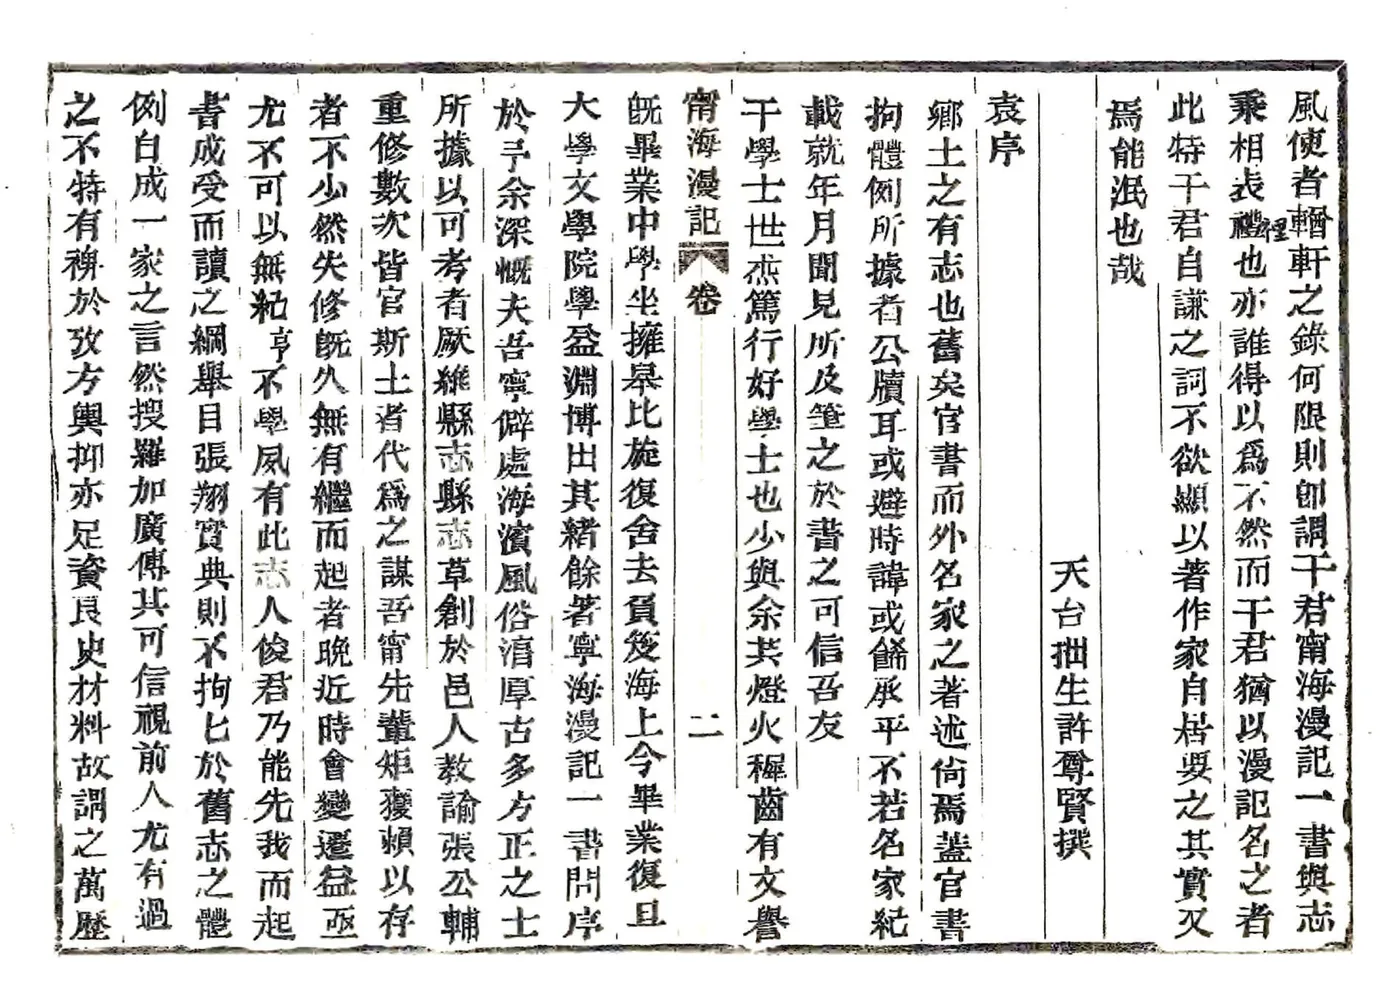 風使者輶軒之錄何限則卽謂干君甯海漫記一書與志
乘相表裡也亦誰得以爲不然而干君猶以漫記名之者
此特干君自謙之詞不欲顯以著作家自居要之其實又
焉能泯也哉
天台拙生許尊賢撰
袁序
鄉土之有志也舊矣官書而外名家之著述尙焉蓋官書
拘體例所據者公牘耳或避時諱或餙承平不若名家紀
載就年月聞見所及筆之於書之可信吾友
干學士世杰篤行好學士也少與余共燈火穉齒有文譽
甯海漫記 卷 二
旣畢業中學坐擁皋比旋復舍去負笈海上今畢業復旦
大學文學院學益淵博出其緒餘著寧海漫記一書問序
於予余深慨夫吾寧僻處海濱風俗渾厚古多方正之士
所據以可考者厥維縣志縣志草創於邑人教諭張公輔
重修數次皆官斯土者代爲之謀吾甯先輩矩矱賴以存
者不少然失修旣久無有繼而起者晚近時會變遷益亟
尤不可以無紀亨不學夙有此志人俊君乃能先我而起
書成受而讀之綱舉目張翔實典則不拘匕於舊志之體
例自成一家之言然搜羅加廣傅其可信視前人尤有過
之不特有裨於攷方輿抑亦足資良史材料故謂之萬歷